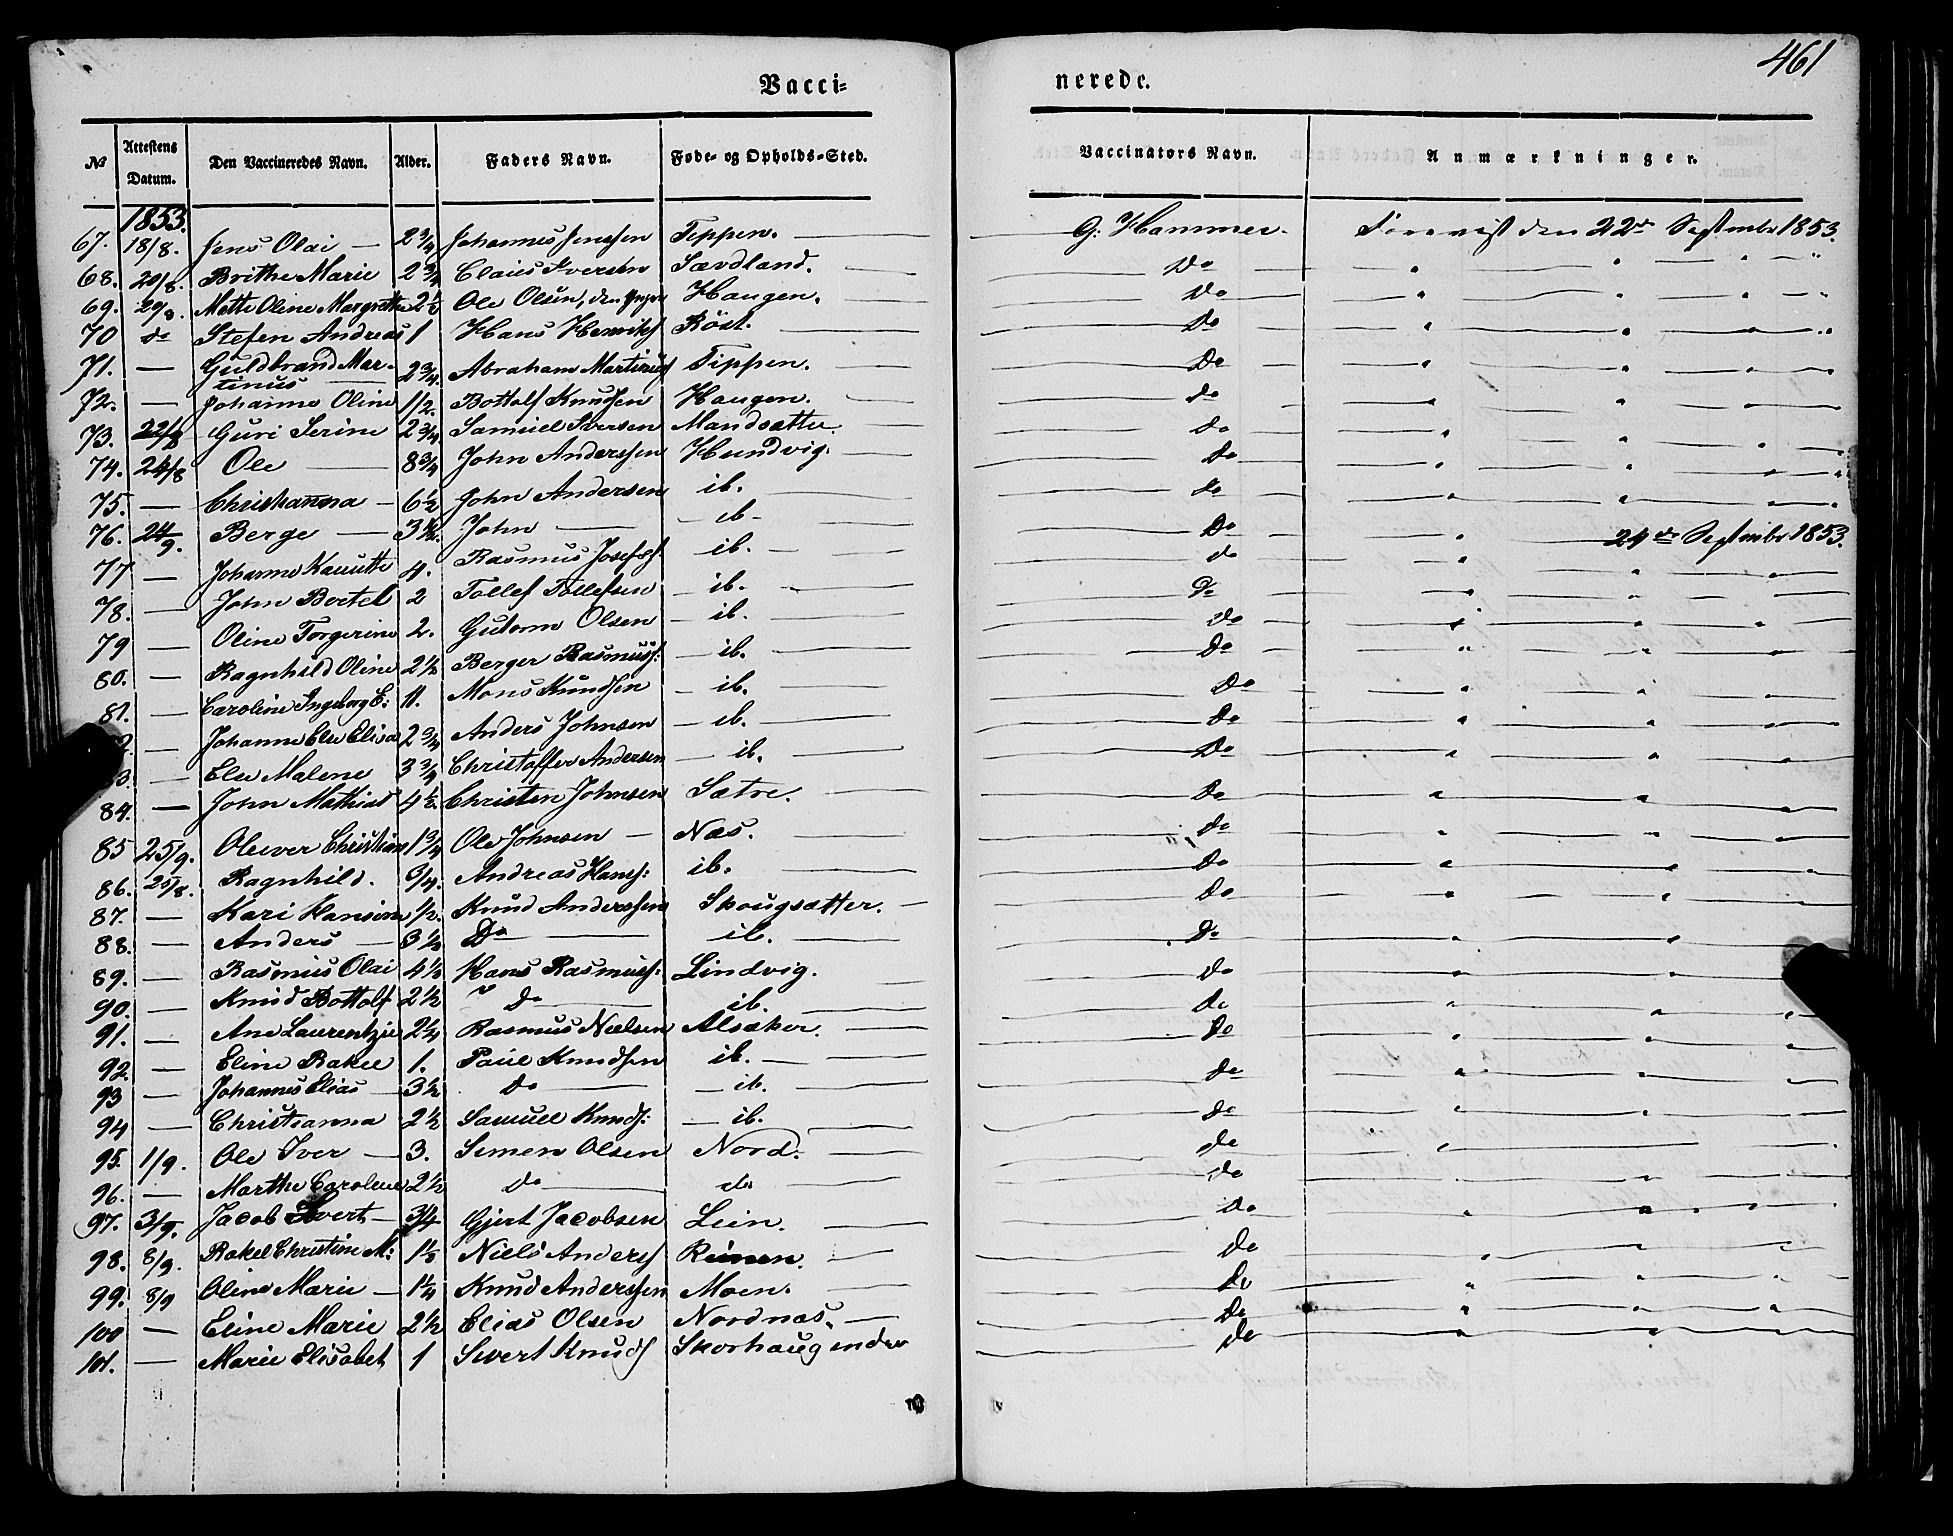 461
Vacci= nerede.
No Attestens Datum. Den Vaccineredes Navn. Alder. Faders Navn. Føde- og Opholds-Sted. Vaccinators Navn. Anmærkninger.
1853.
67. 18/8. Jens Olai — 2 3/4 Johannes Jenssen Teppen. — G: Hammer. Foreviist den 22de September 1853.
68. 20/8. Brithe Marie 2 3/4 Claus Iversen Sævdland. — Do " " "
69. 20/8. Mette Oline Margrethe 2 1/2 Ole Olsen, den yngre Haugen. Do " " "
70 do Stefen Andreas 1 Hans Henriks Röst. — Do " " "
71. — Guldbrand Mar-
tinus — 2 3/4. Abraham Martinus Tippen. — Do " " "
72. — Johanne Oline 1/2. Bottolf Knudsen Haugen. — do " " "
73. 22/8 Guri Serine 2 3/4 Samuel Iversen Mandsætter. do " " "
74. 24/8 Ole — 8 3/4 John Anderssen Hundvig. do " " "
75. — Christianna — 6 1/2 John Andersen ib. — do " " "
76. 24/9. Berge — 3 1/2. John — — ib — Do " 24de September 1853.
77 — Johanne Knutte 4. Rasmus Josefs. — ib. — do " " "
78. — John Bertel 2 Tollef Tollefsen — ib. — Do " " "
79 — Oline Torgerine 2. Gutorm Olsen — ib. — Do " " "
80. — Ragnhild Oline 2 1/2 Berger Rasmuss: — ib. — Do " " "
81. — Caroline Ingeborg E: 11. Mons Knudsen — ib. — Do " " "
2. — Johanne Else Elisa 2 3/4 Anders Johnsen — ib. — Do " " "
3. — Else Malene 3 3/4 Christoffer Andersen — ib. — Do " " "
84. — John Mathias 4 1/2. Christen Johnsen Sætre. — Do " " "
85 25/9. Oluver Christian 1 3/4 Ole Johnsen — Næs. — do " " "
86. 25/8. Ragnhild. 3/4. Andreas Hans: ib. — Do " " "
87. — Kari Hansine 1/2. Knud Anderssen Skougsætter. — Do " " "
88. — Anders — 3 1/2 Do — ib. — Do " " "
89. — Rasmus Olai 4 1/2 Hans Rasmuss: Lindvig. do " " "
90. — Knud Bottolf 2 1/2 " Do — ib. — do " " "
91. — Ane Laurentzie 2 1/4 Rasmus Nielsen Alsaker. — Do " " "
92. — Eline Rakel 1. Paul Knudsen ib. — do " " "
93 — Johannes Elias — 3 1/2 do — — ib. — do " " "
94 — Christianna 2 1/2 Samuel Knuds: — ib. — do " " "
95. 1/9. Ole Iver — 3. Simen Olsen Nord. — do "
96. — Marthe Caroline 2 1/2 do — do — Do " " "
97. 3/9. Jacob Sivert — 3/4 Gjert Jacobsen Lein. — do " " "
98. 8/9. Rakel Christine M: 1 1/2 Niels Anders Reinen. — do " " "
99. 8/9 Oline Marie — 1 1/4 Knud Anderssen Moen. — do " " "
100 — Eline Marie 2 1/2 Elias Olsen Nordnæs. — do " " "
101. — Marie Elisabet 1 Sivert Knuds Skorhaug indre do " " "